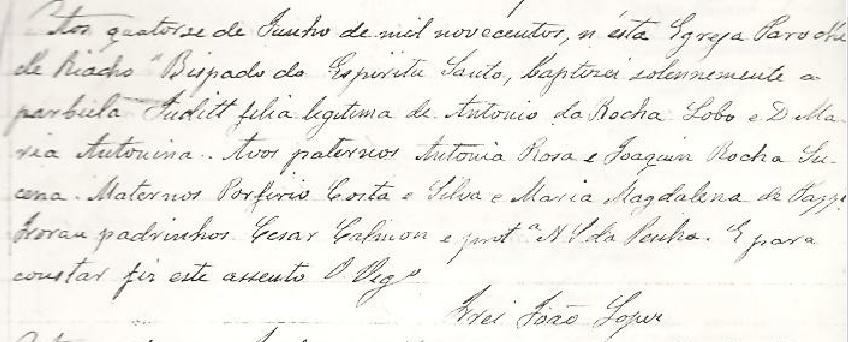 Aos quatorse de Junho de mil novecentos, n'esta Egreja Parochi
de Riacho "Bispado do Espirito Santo, baptisei solennemente a
parvula Juditt filia legitima de Antonio da Rocha Lobo e D. Ma-
ria Antonina. Avos paternos Antonia Rosa e Joaquin Rocha Su-
cena. Maternos Porfirio Costa e Silva e Maria Magdalena de
Foran padrinhos Cesar Calmon e prot.ª N S da Penha. E para
constar fiz este assento O Vigº
Frei João Lopes